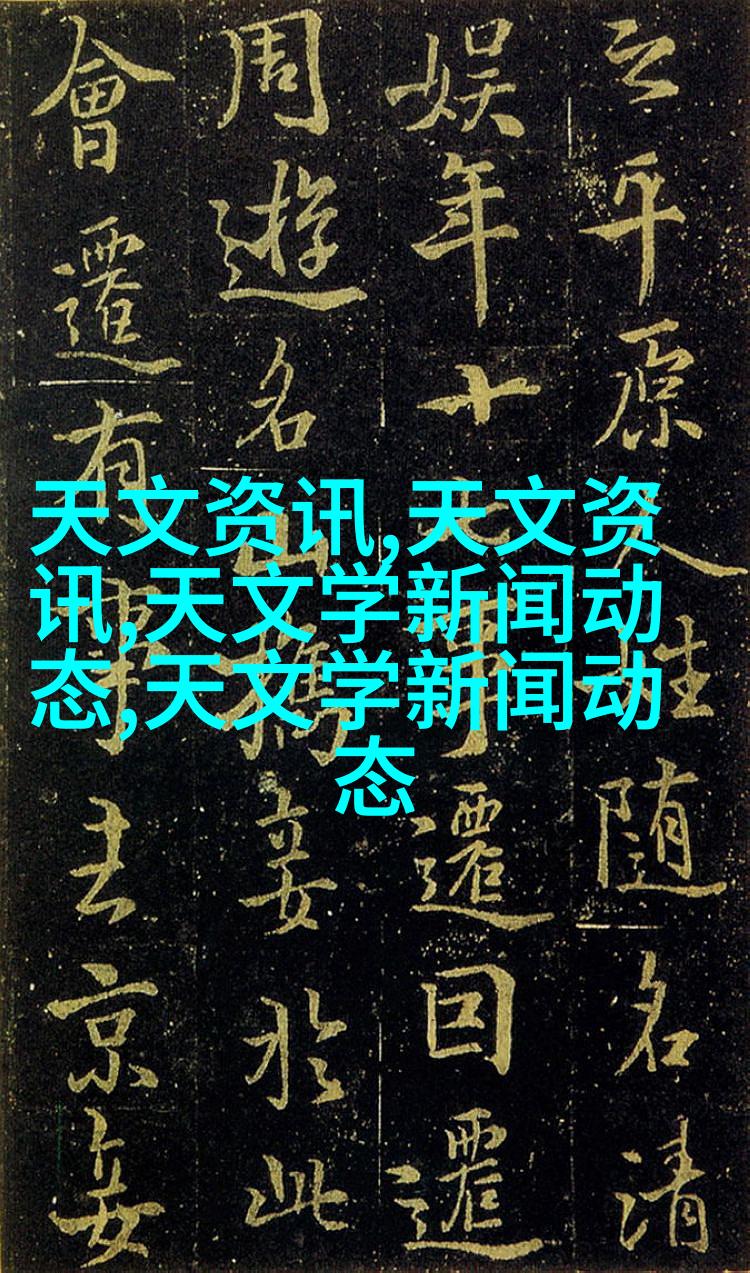 天文资讯,天文资
讯,天文学新闻动
态,天文学新闻动
态
之平原人姓随名清
娱年十遷回遷
周遊名山携妾於此
會遷有事去京妾